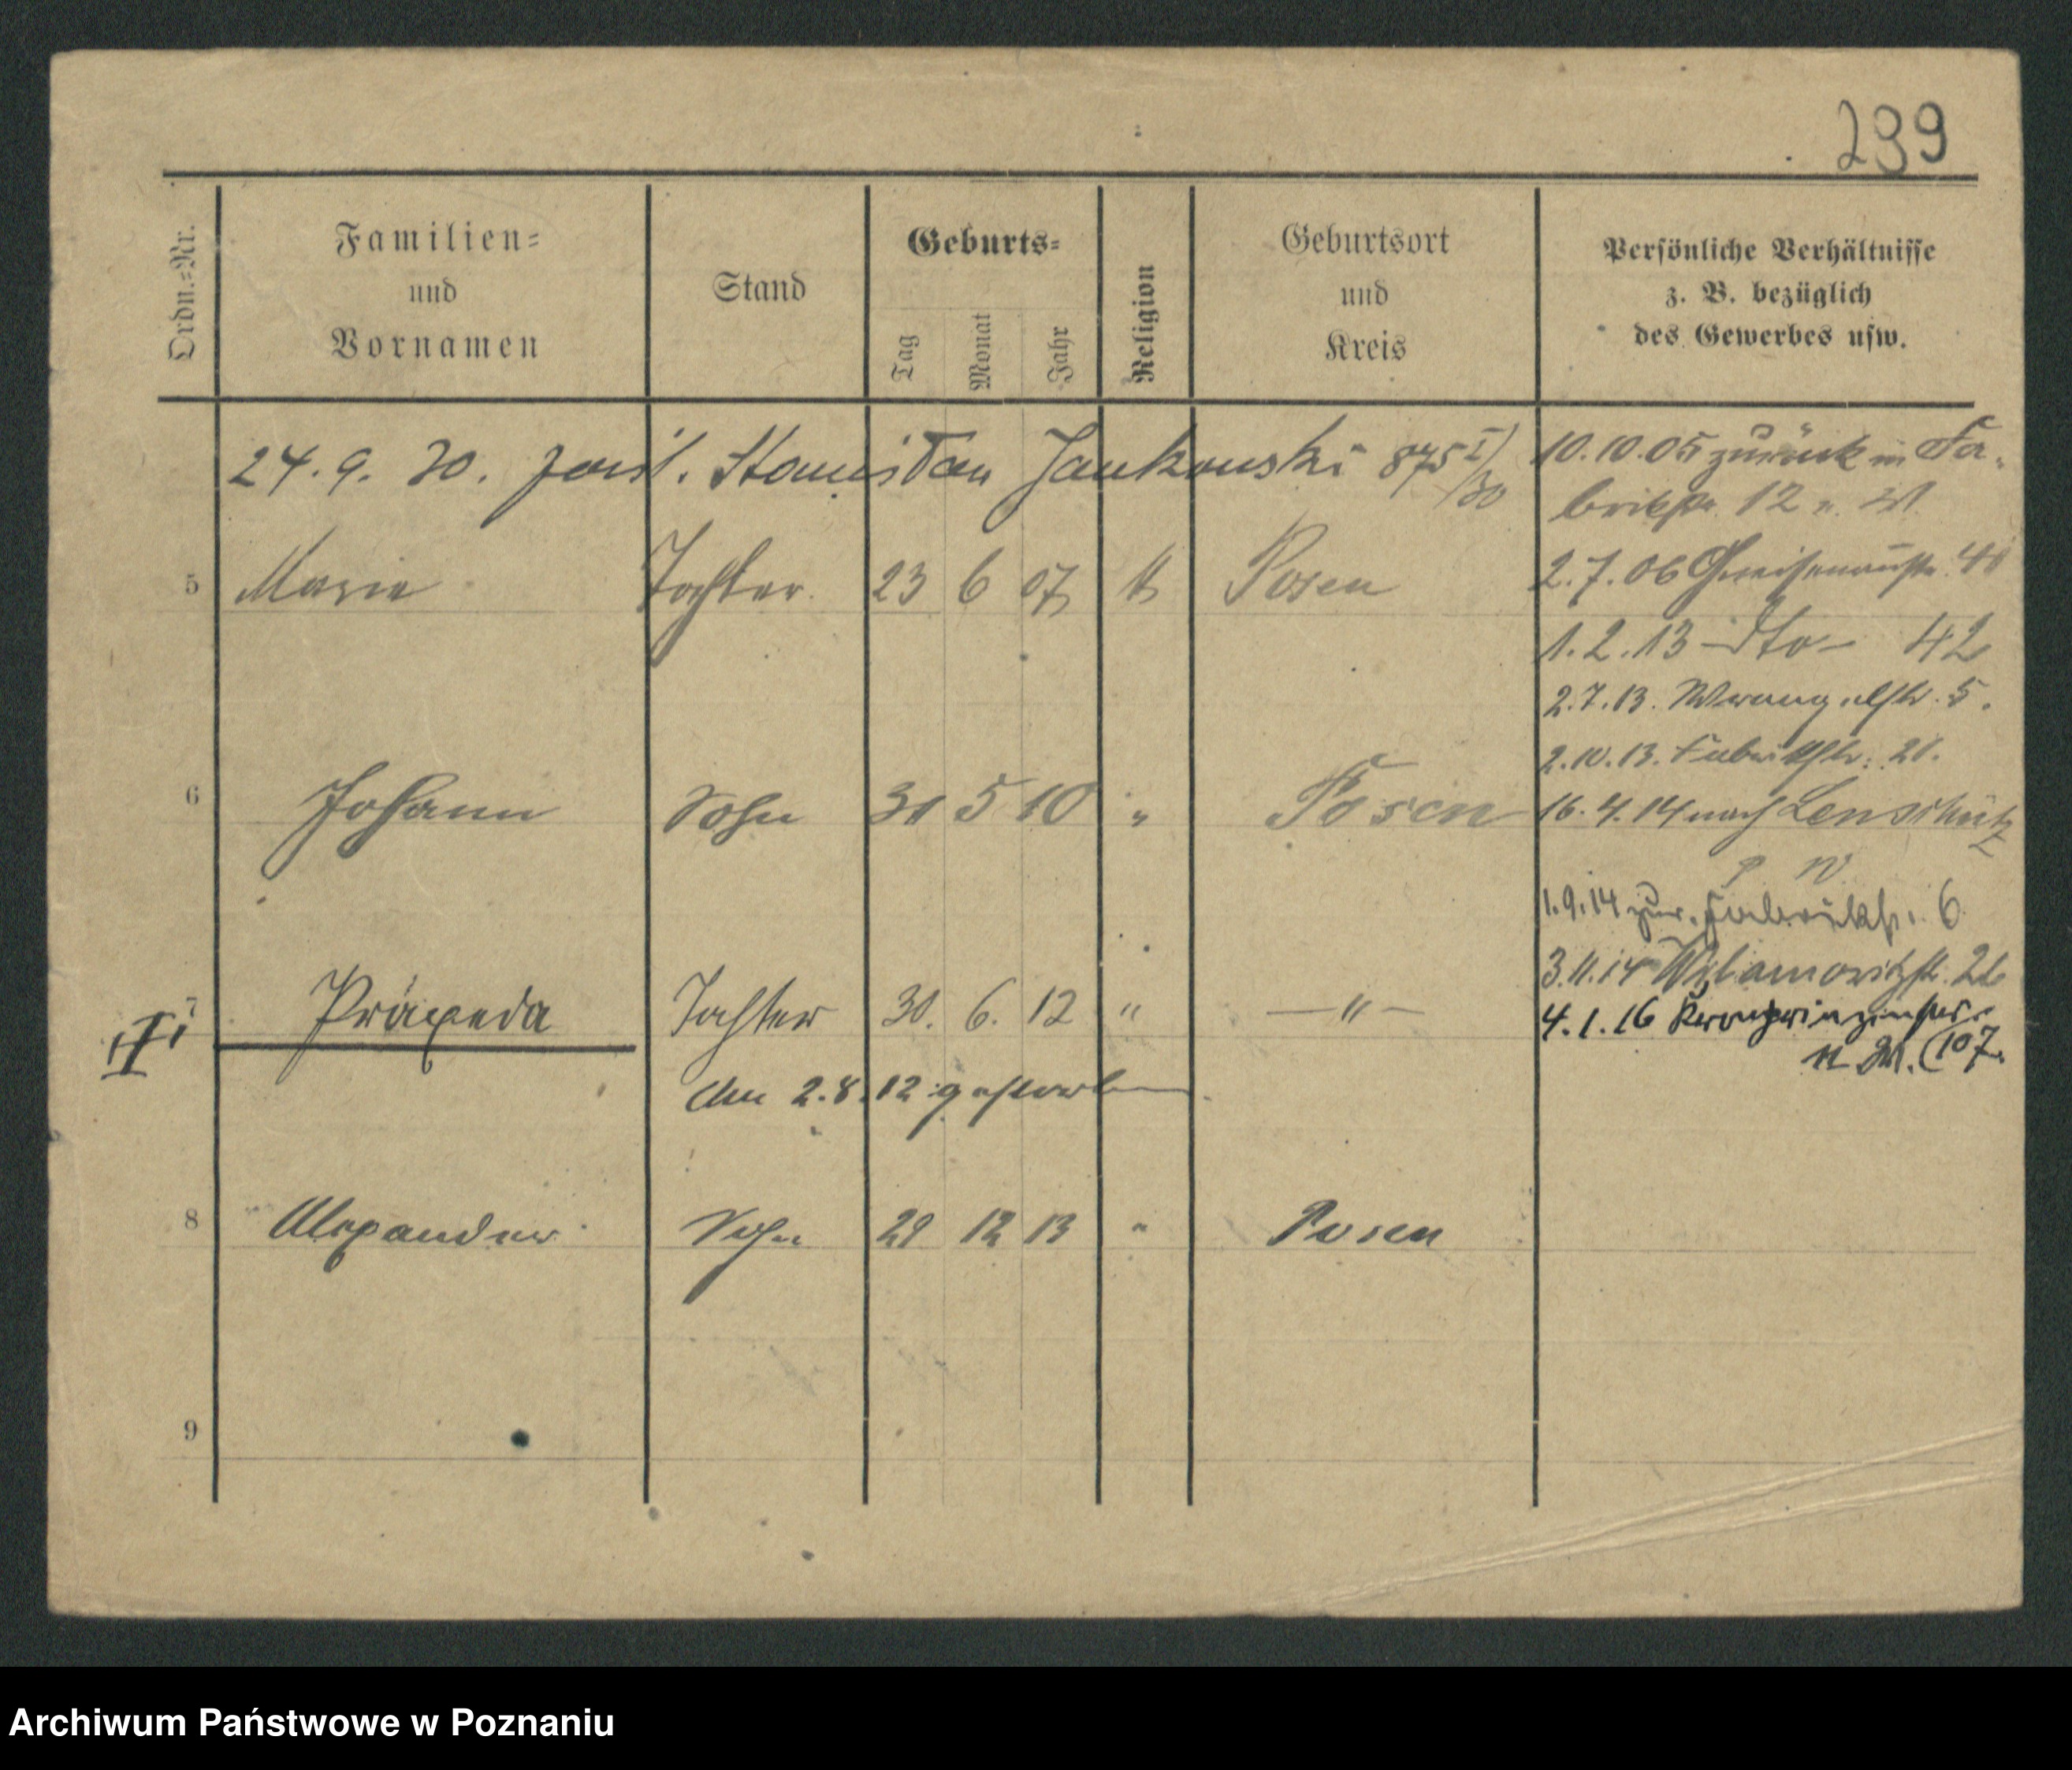 239
Ordn.=Nr.
Familien=
und
Vornamen
Stand
Geburts=
Tag
Monat
Jahr
Religion
Geburtsort
und
Kreis
Persönliche Verhältnisse
z. B. bezüglich
des Gewerbes usw.
24. 9. 30. Jankowski 875 I/30
10.10.05 zurück in Fa-
brikstr. 12 n. W.
5 Marie Tochter 23 6 07 k Posen
2.7.06 Gneisenaustr. 4
1.2.13 – dto – 42
2.7.13. Wrangelstr. 5.
2.10.13. Fabrikstr. 21.
6 Johann Sohn 30 5 10 " Posen
16.4.14 nach Lenschütz
1.9.14 zur. Fabrikstr. 6
3.11.14
7 Praxeda Tochter 30. 6. 12 " — " —
4.1.16 Kronprinzenstr.
107.
Am 2.8.12 gestorben
8 Alexander Sohn 29 12 13 " Posen
9
Archiwum Państwowe w Poznaniu